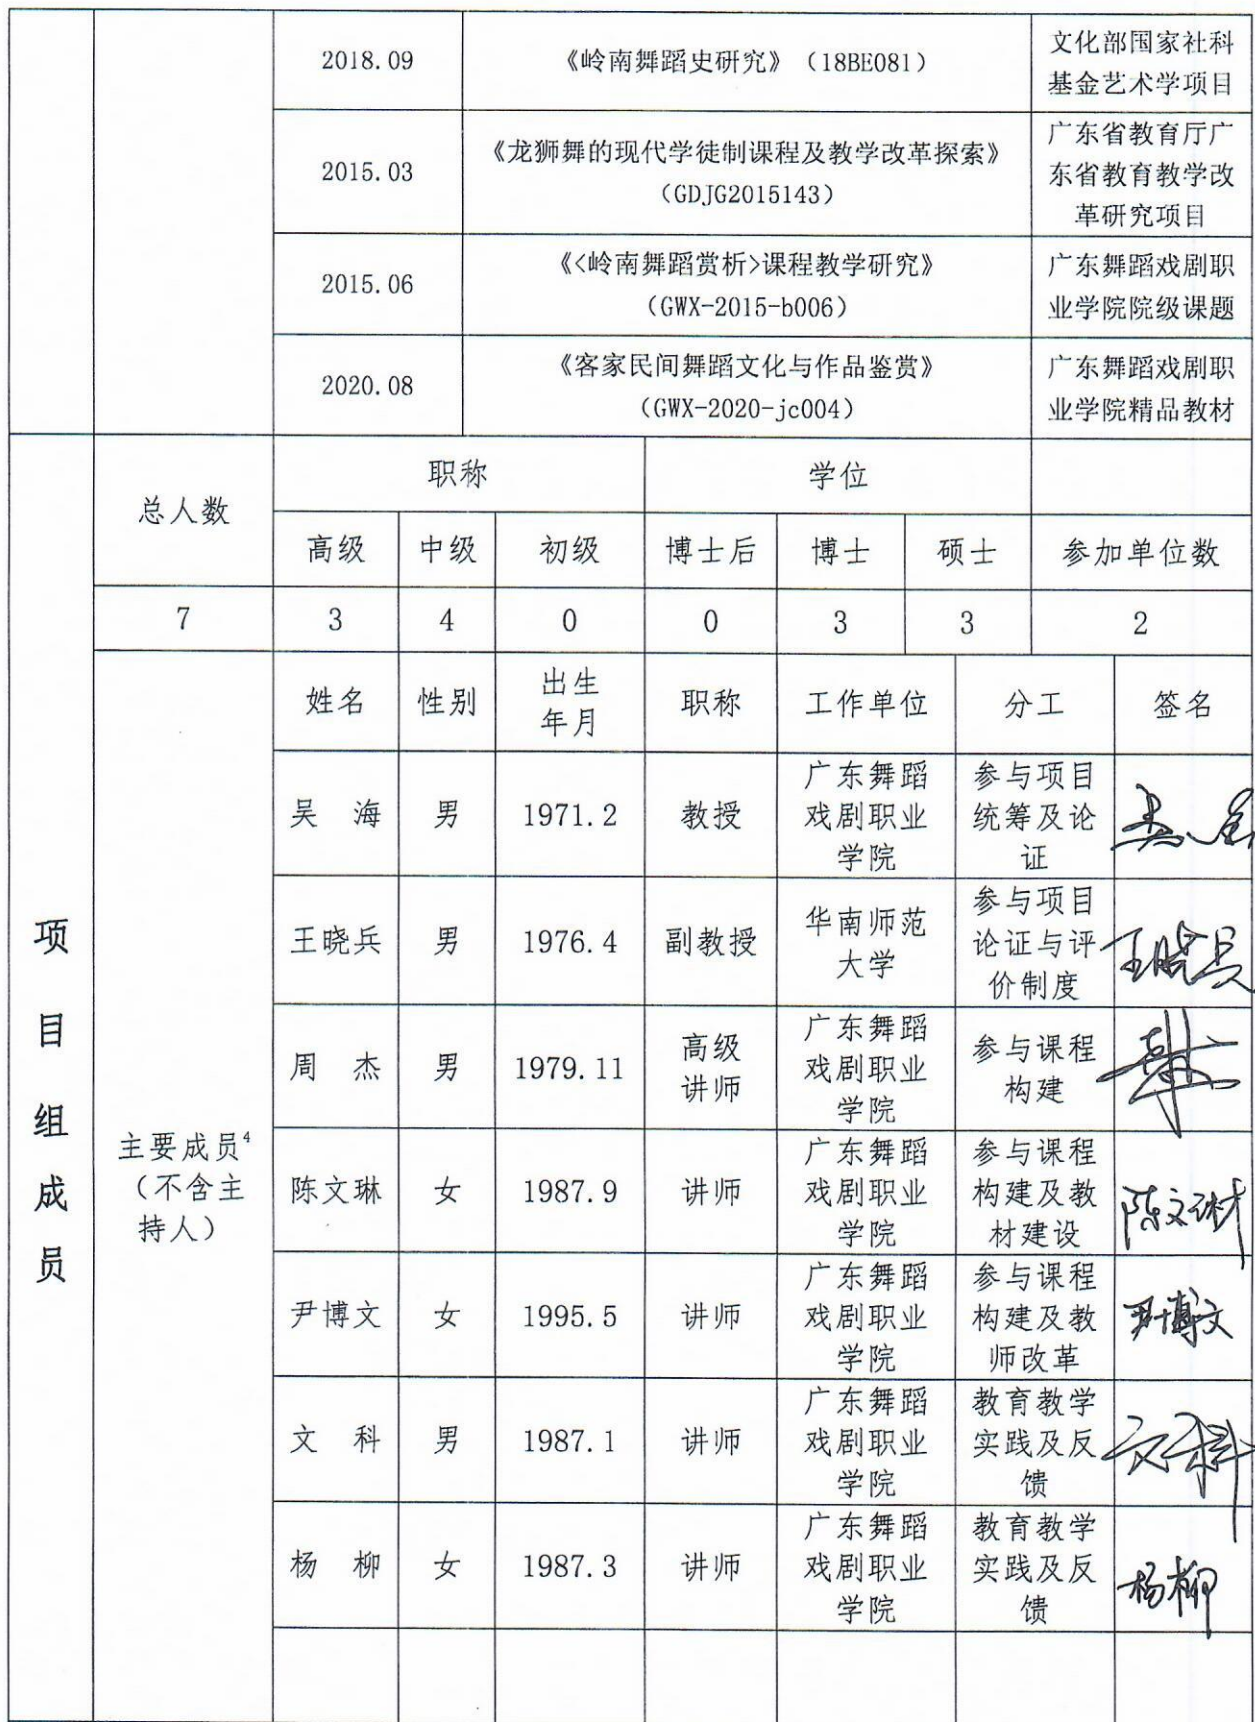 2018.09 《岭南舞蹈史研究》（18BE081） 文化部国家社科
基金艺术学项目
2015.03 《龙狮舞的现代学徒制课程及教学改革探索》
（GDJG2015143） 广东省教育厅广
东省教育教学改
革研究项目
2015.06 《<岭南舞蹈赏析>课程教学研究》
（GWX-2015-b006） 广东舞蹈戏剧职
业学院院级课题
2020.08 《客家民间舞蹈文化与作品鉴赏》
（GWX-2020-jc004） 广东舞蹈戏剧职
业学院精品教材
项
目
组
成
员
总人数 职称 学位
高级 中级 初级 博士后 博士 硕士 参加单位数
7 3 4 0 0 3 3 2
主要成员4
（不含主
持人）
姓名 性别 出生
年月 职称 工作单位 分工 签名
吴 海 男 1971.2 教授 广东舞蹈
戏剧职业
学院 参与项目
统筹及论
证
王晓兵 男 1976.4 副教授 华南师范
大学 参与项目
论证与评
价制度 王晓兵
周 杰 男 1979.11 高级
讲师 广东舞蹈
戏剧职业
学院 参与课程
构建
陈文琳 女 1987.9 讲师 广东舞蹈
戏剧职业
学院 参与课程
构建及教
材建设 陈文琳
尹博文 女 1995.5 讲师 广东舞蹈
戏剧职业
学院 参与课程
构建及教
师改革 尹博文
文 科 男 1987.1 讲师 广东舞蹈
戏剧职业
学院 教育教学
实践及反
馈 文科
杨 柳 女 1987.3 讲师 广东舞蹈
戏剧职业
学院 教育教学
实践及反
馈 杨柳